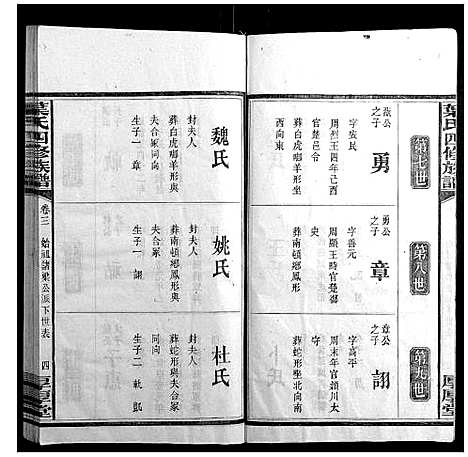 葉氏四修族譜
厚厚堂
第七世
第八世
第九世
公
之子
勇
字
民
周烈王四年己酉
官楚邑令
葬白虎啣羊形坐
西向東
勇公
之子
章
字善元
周顯王時官楚御
史
葬南頓鄉鳳形
章公
之子
詡
字高平
周末年官潁川太
守
葬蛇形坐北向南
魏氏
封夫人
葬白虎啣羊形與
夫合冢同向
生子一 章
姚氏
封夫人
葬南頓鄉鳳形與
夫合冢
生子一 詡
杜氏
封夫人
葬蛇形與夫合冢
同向
生子二 軌 凱
葉氏四修族譜
卷三
始祖諸梁公派下世表
四
厚厚堂